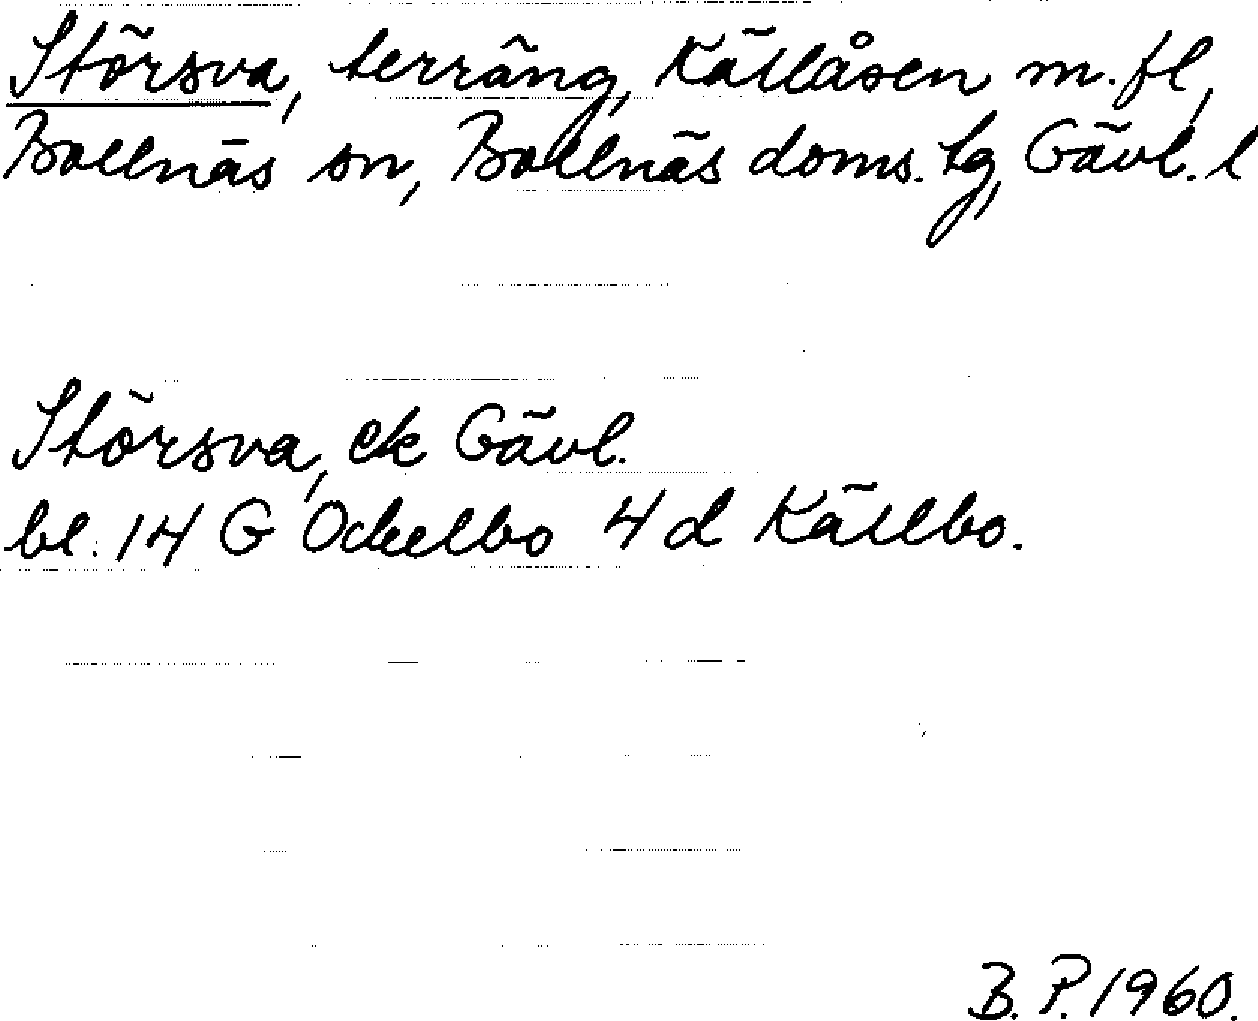 Störsva, terräng, Källåsen m. fl,
Bollnäs sn, Bollnäs doms. tg, Gävl. l
Störsva, ek Gävl.
bl. 14 G Ockelbo 4 d Källbo.
B. P. 1960.